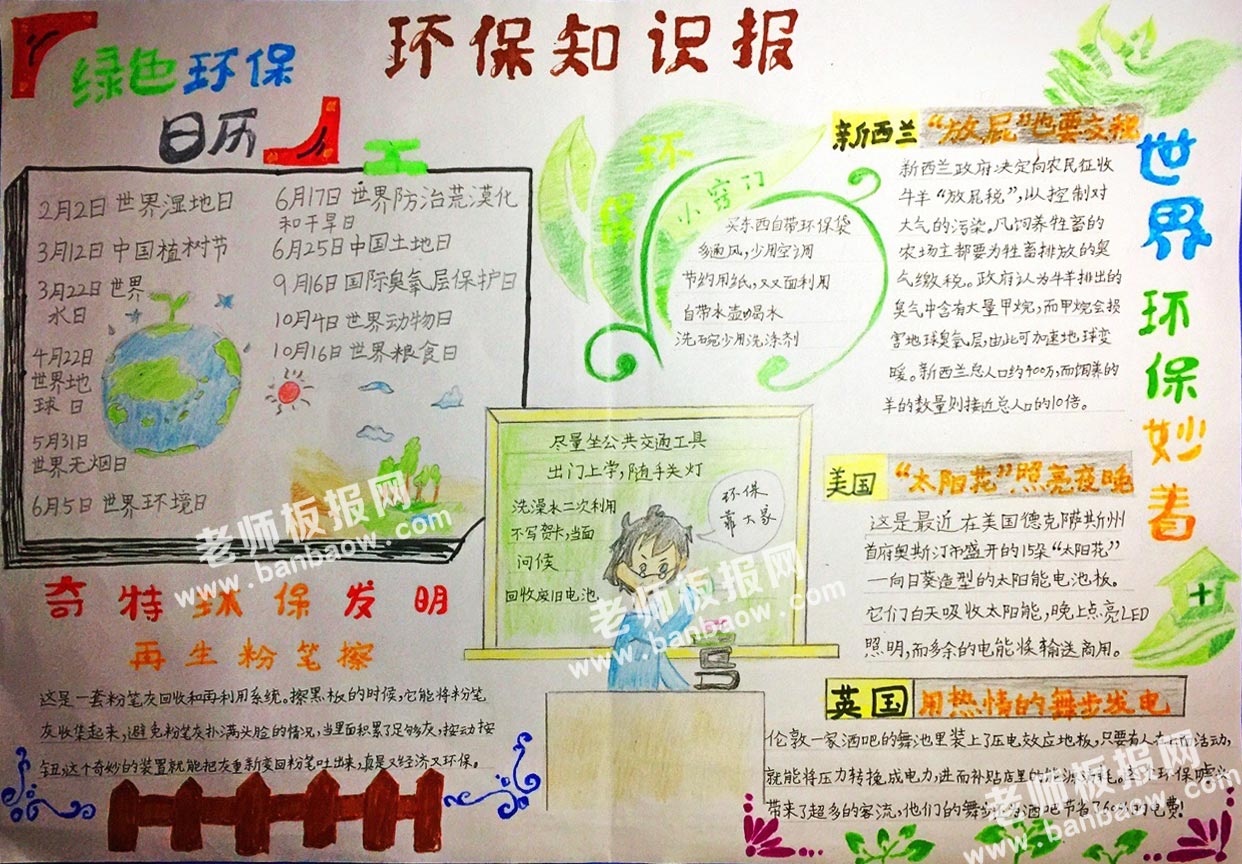 环保知识报
绿色环保
日历
2月2日世界湿地日
3月12日中国植树节
3月22日世界
水日
4月22日
世界地
球日
5月31日
世界无烟日
6月5日世界环境日
6月17日世界防治荒漠化
和干旱日
6月25日中国土地日
9月16日国际臭氧层保护日
10月4日世界动物日
10月16日世界粮食日
奇特环保发明
再生粉笔擦
这是一套粉笔灰回收和再利用系统。擦黑板的时候,它能将粉笔
灰收集起来,避免粉笔灰扑满头脸的情况,当里面积累了足够灰,按动按
钮,这个奇妙的装置就能把灰重新变回粉笔吐出来,真是又经济又环保。
环
保
小窍门
买东西自带环保袋
多通风,少用空调
节约用纸,双面利用
自带水壶喝水
洗碗少用洗涤剂
尽量坐公共交通工具
出门上学,随手关灯
洗澡水二次利用
不写贺卡,当面
问候
回收废旧电池
环保
靠大家
世界环保妙着
新西兰“放屁”也要交税
新西兰政府决定向农民征收
牛羊“放屁税”,以控制对
大气的污染。凡饲养牲畜的
农场主都要为牲畜排放的臭
气缴税。政府认为牛羊排出的
臭气中含有大量甲烷,而甲烷会损
害地球臭氧层,由此可加速地球变
暖。新西兰总人口约400万,而饲养的
羊的数量则接近总人口的10倍。
美国“太阳花”照亮夜晚
这是最近在美国德克萨斯州
首府奥斯汀市盛开的15朵“太阳花”
一向日葵造型的太阳能电池板。
它们白天吸收太阳能,晚上点亮LED
照明,而多余的电能将输送商用。
英国用热情的舞步发电
伦敦一家酒吧的舞池里装上了压电效应地板,只要有人在上面活动,
就能将压力转换成电力,进而补贴店里的能源消耗。这个环保噱头
带来了超多的客流,他们的舞步为酒吧节省了60%的电费!
老师板报网
www.banbaow.com
老师板报网
www.banbaow.com
老师板报网
www.banbaow.com